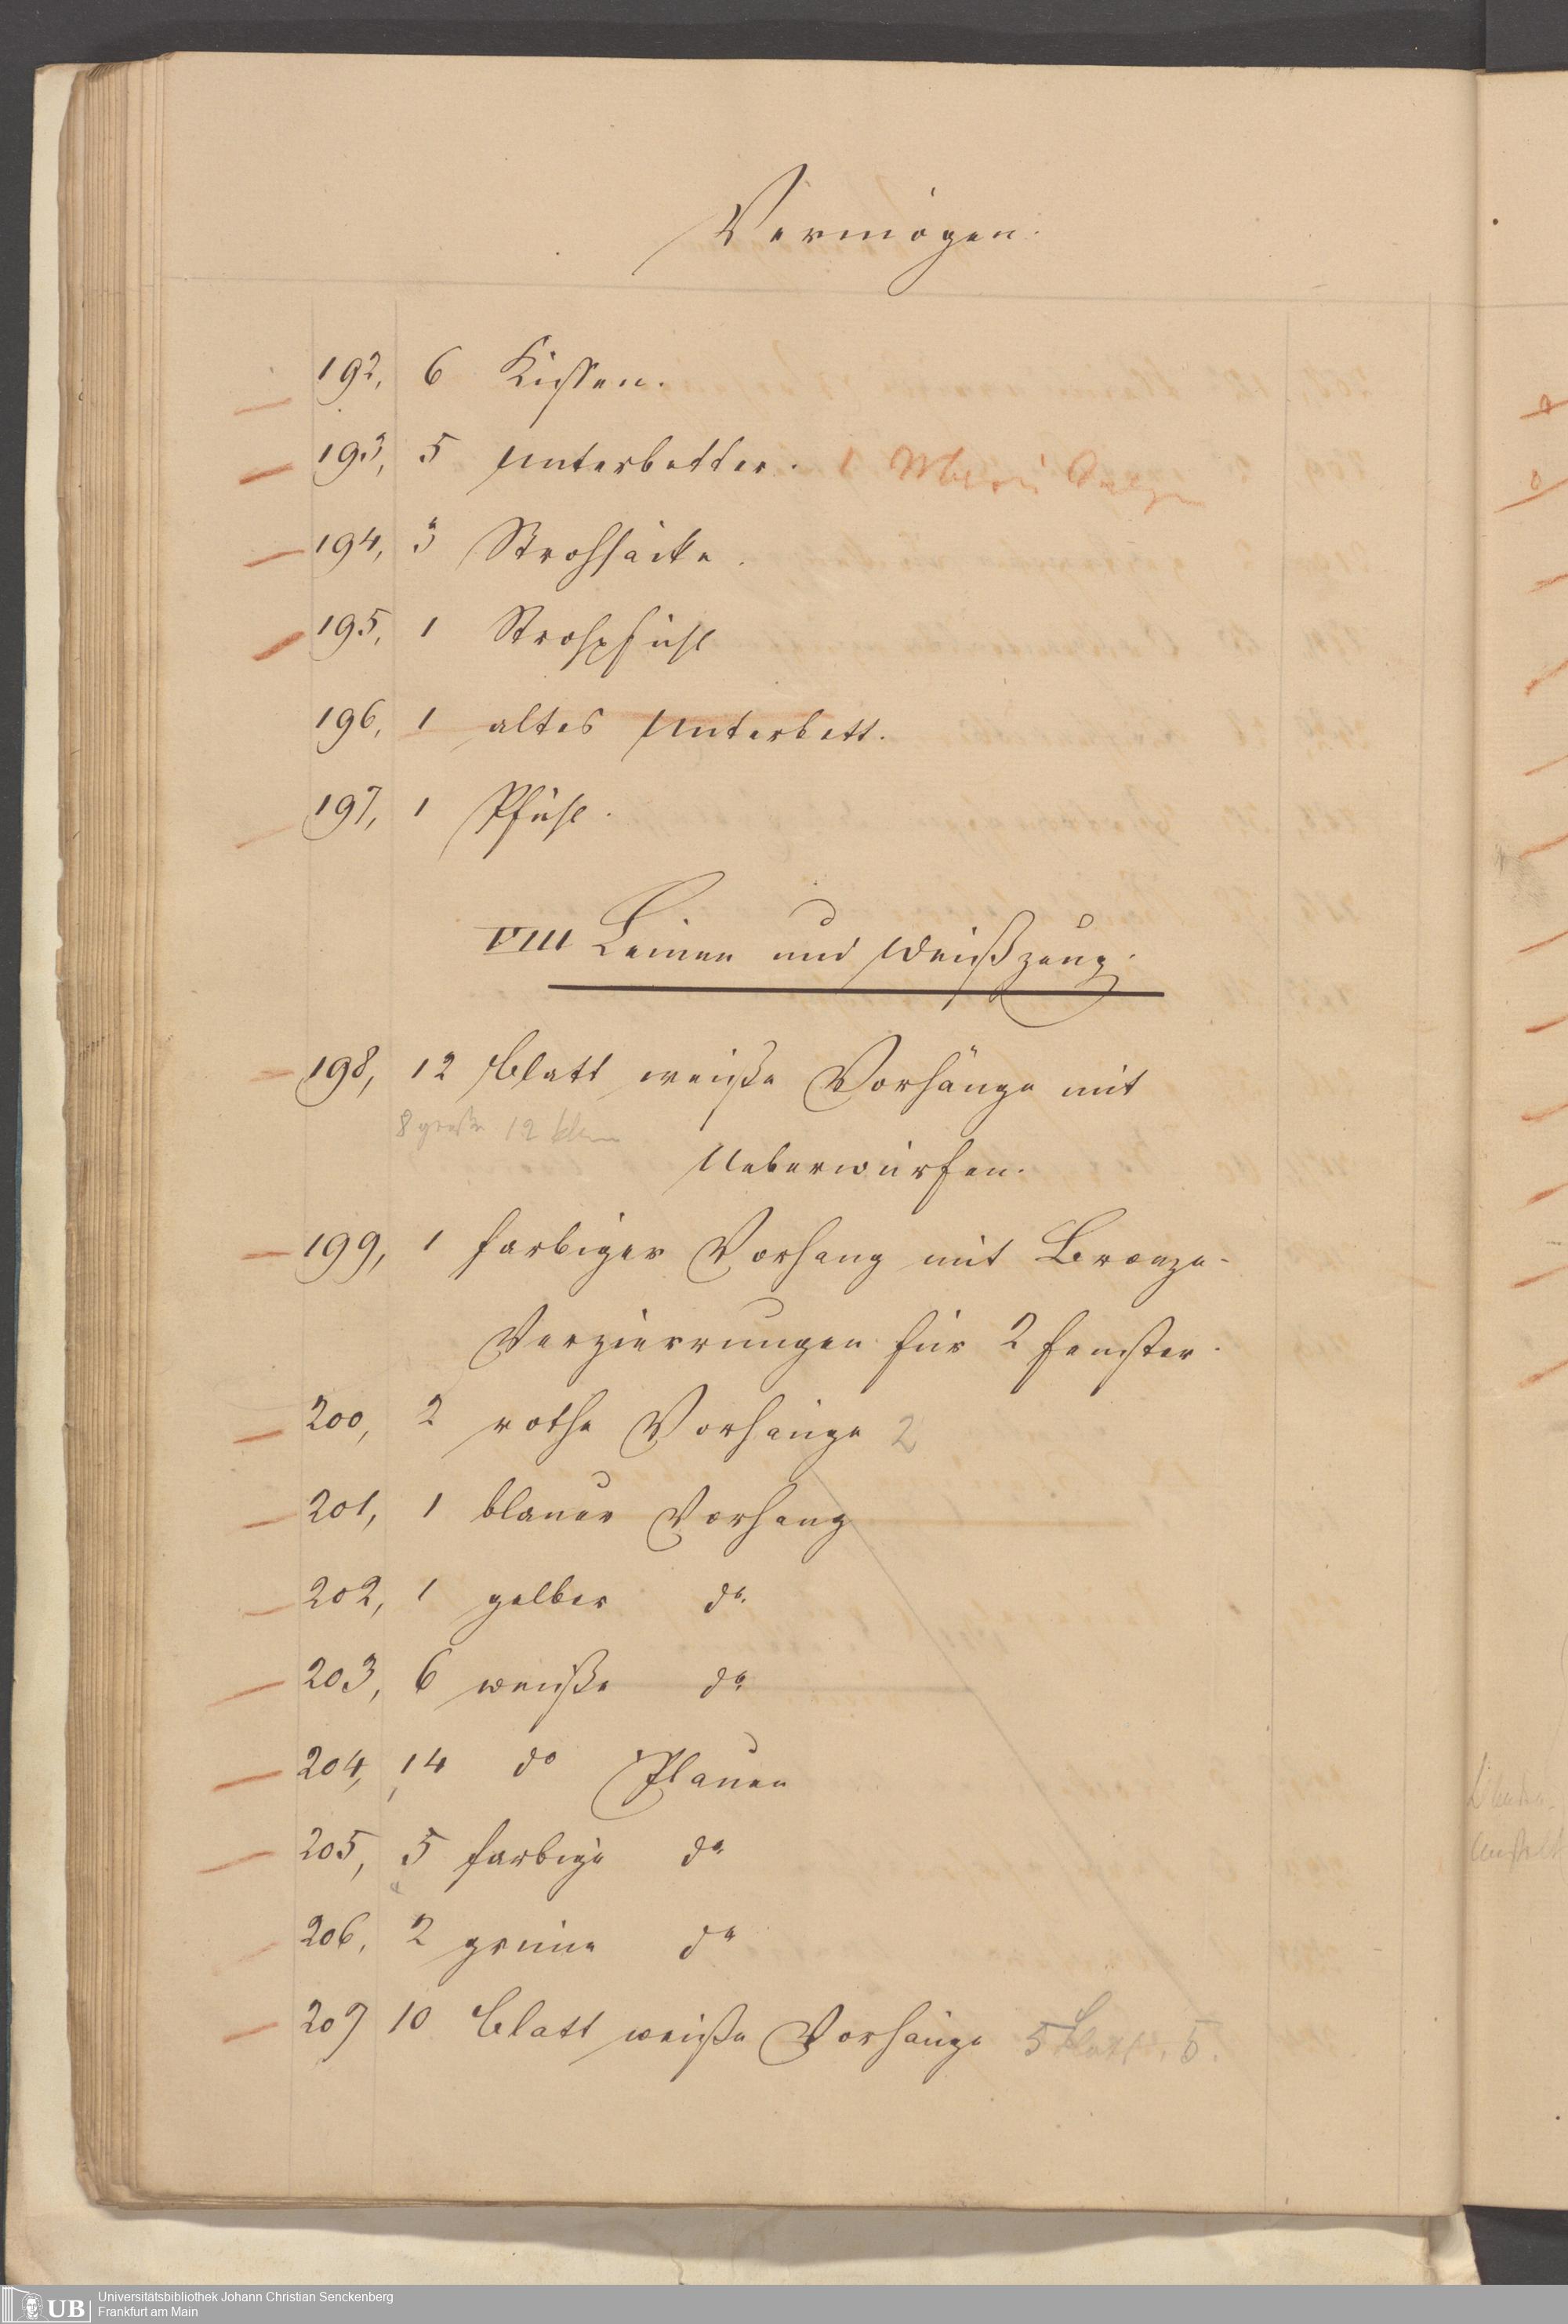 Vermögen.
192, 6 Kissen.
193, 5 Unterbetter. 1
194, 3 Strohsäcke.
195, 1 Strohpfühl
196, 1 altes Unterbett.
197, 1 Pfühl.
VIII Leinen und Weißzeug.
198, 12 Blatt weiße Vorhänge mit
8 große 12 klein
Ueberwürfen.
199, 1 farbiger Vorhang mit Bronze-
Verzierrungen für 2 Fenster.
200, 2 rothe Vorhänge 2
201, 1 blauer Vorhang
202, 1 gelber do.
203, 6 weiße do
204, 14 do Plauen
205, 5 farbige do
206, 2 grüne do
207 10 Blatt weiße Vorhänge 5 Blatt. 5.
Universitätsbibliothek Johann Christian Senckenberg
Frankfurt am Main
UB